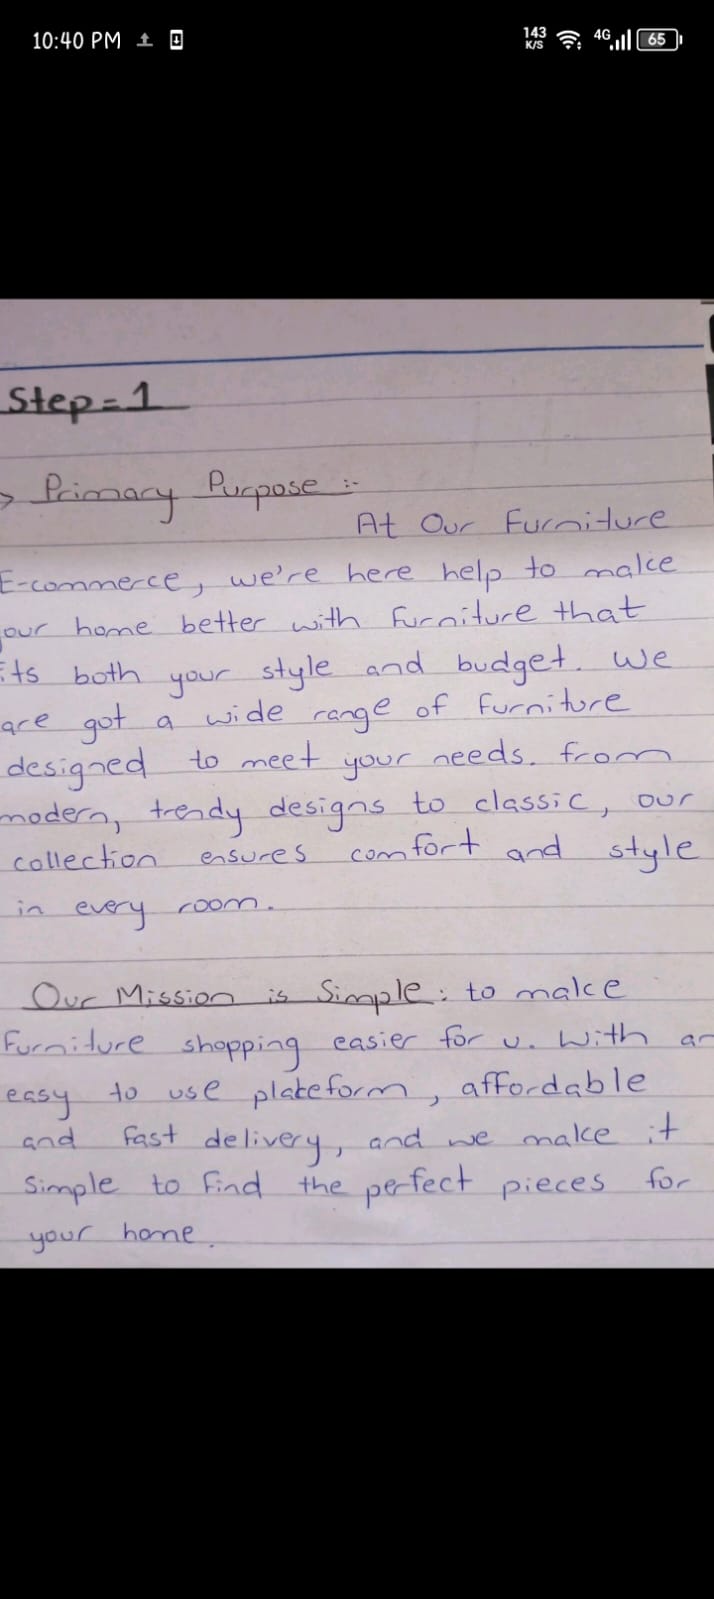 10:40 PM
143 K/S 4G 65
Step=1
> Primary Purpose :-
At Our Furniture
E-commerce, we're here help to make
our home better with furniture that
its both your style and budget. We
are got a wide range of furniture
designed to meet your needs. from
modern, trendy designs to classic, our
collection ensures comfort and style
in every room.
Our Mission is Simple: to make
furniture shopping easier for u. With an
easy to use plateform, affordable
and fast delivery, and we make it
simple to find the perfect pieces for
your home.